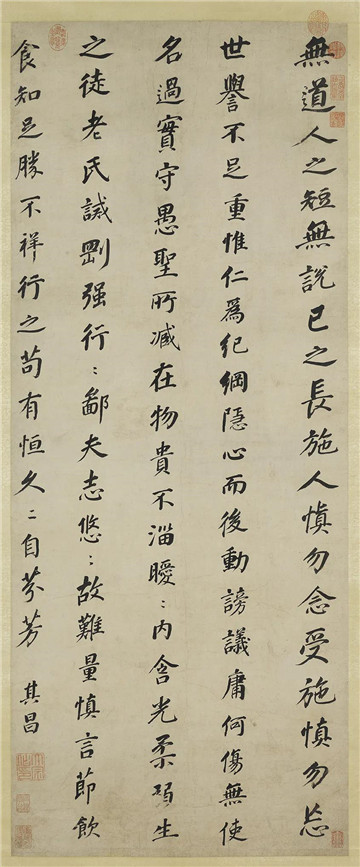 無道人之短無說己之長施人慎勿念受施慎勿忘
世譽不足重惟仁爲紀綱隱心而後動謗議庸何傷無使
名過實守愚聖所臧在物貴不淄曖:內含光柔弱生
之徒老氏誡剛强行:鄙夫志悠:故難量慎言節飲
食知足勝不祥行之苟有恒久:自芬芳 其昌